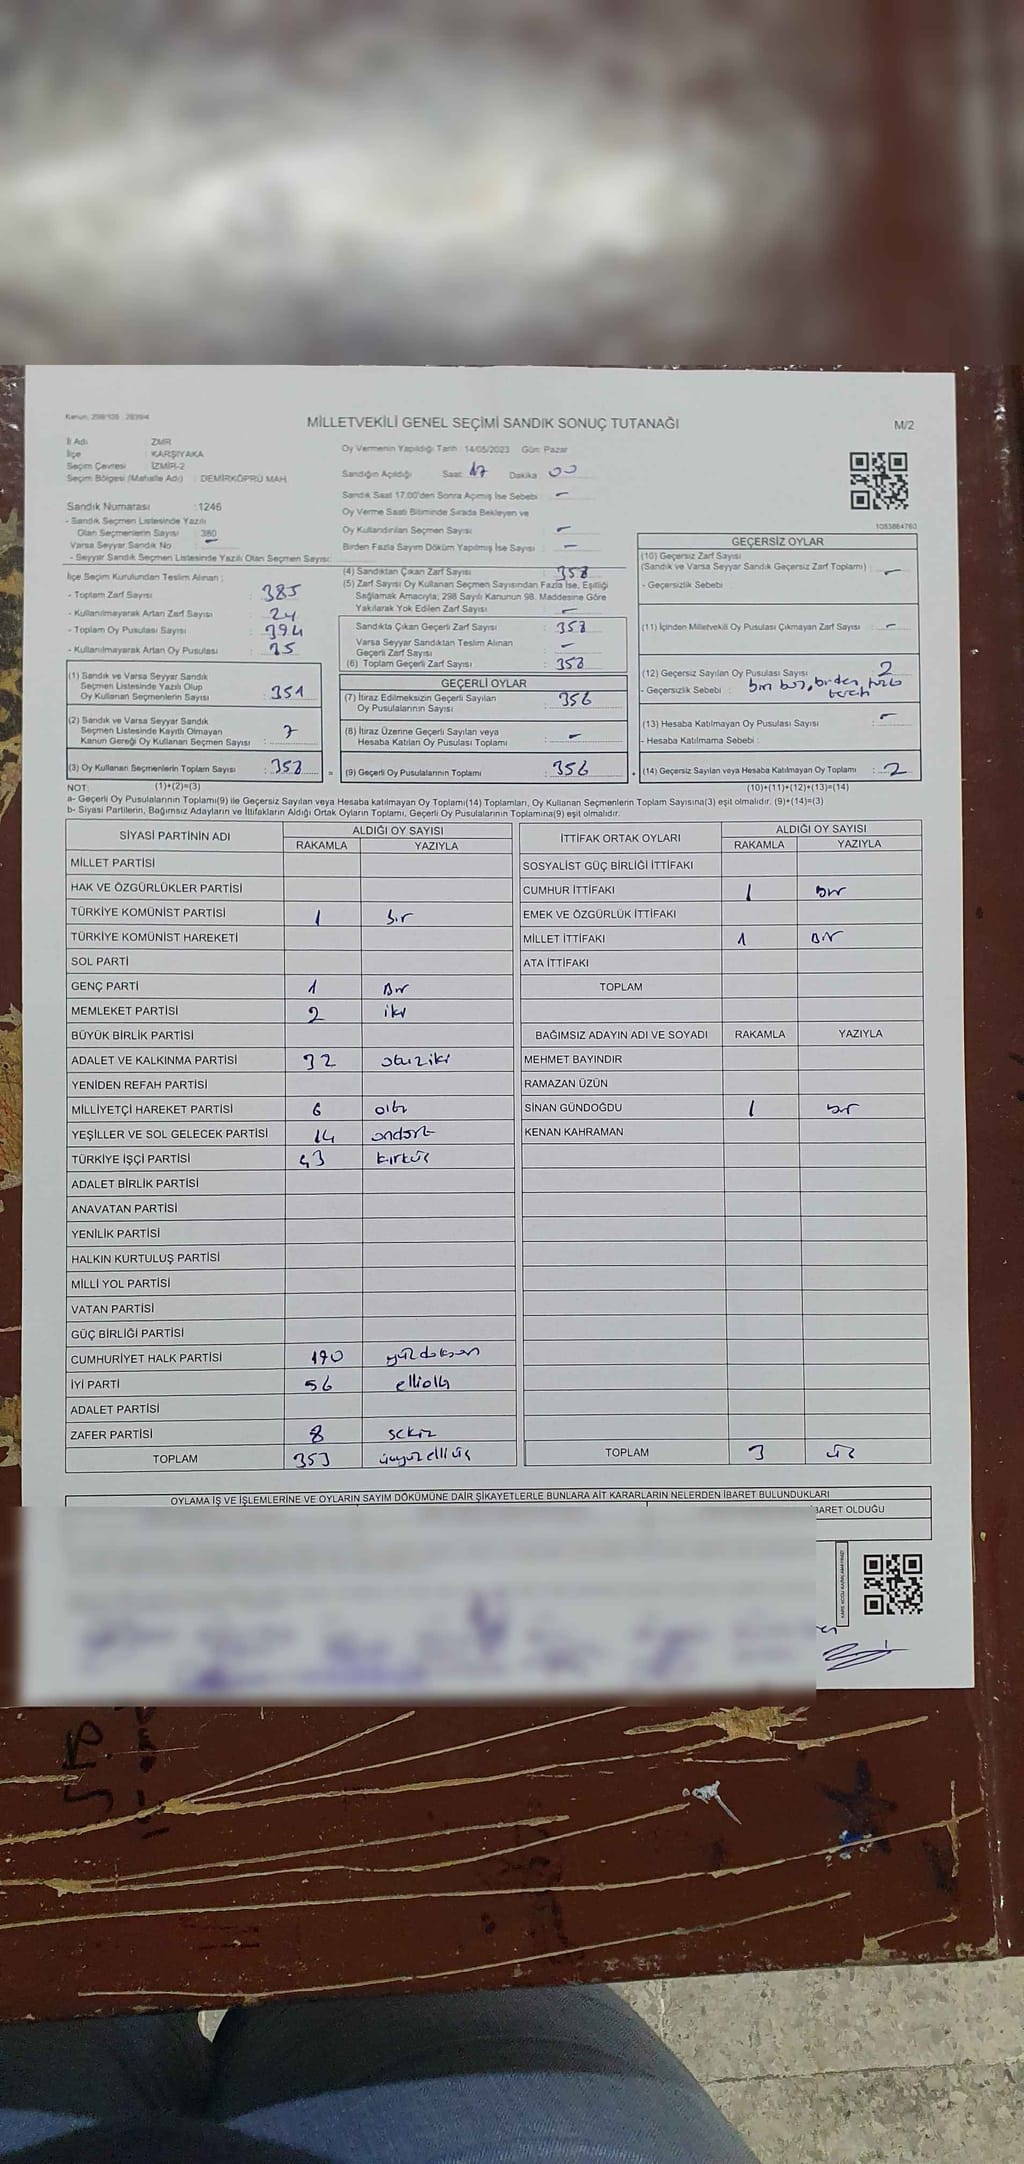 Kanun, 298/105 ; 2839/4
MİLLETVEKİLİ GENEL SEÇİMİ SANDIK SONUÇ TUTANAĞI
M/2
İl Adı : ZMR
İlçe : KARŞIYAKA
Seçim Çevresi : İZMİR-2
Seçim Bölgesi (Mahalle Adı) : DEMİRKÖPRÜ MAH.
Sandık Numarası : 1246
- Sandık Seçmen Listesinde Yazılı
Olan Seçmenlerin Sayısı : 380
Varsa Seyyar Sandık No : -
- Seyyar Sandık Seçmen Listesinde Yazılı Olan Seçmen Sayısı:
İlçe Seçim Kurulundan Teslim Alınan ;
- Toplam Zarf Sayısı : 385
- Kullanılmayarak Artan Zarf Sayısı : 24
- Toplam Oy Pusulası Sayısı : 394
- Kullanılmayarak Artan Oy Pusulası :
(1) Sandık ve Varsa Seyyar Sandık
Seçmen Listesinde Yazılı Olup
Oy Kullanan Seçmenlerin Sayısı : 351
(2) Sandık ve Varsa Seyyar Sandık
Seçmen Listesinde Kayıtlı Olmayan
Kanun Gereği Oy Kullanan Seçmen Sayısı : 7
(3) Oy Kullanan Seçmenlerin Toplam Sayısı : 358
Oy Vermenin Yapıldığı Tarih : 14/05/2023 Gün: Pazar
Sandığın Açıldığı Saat: 17 Dakika : 00
Sandık Saat 17:00'den Sonra Açılmış İse Sebebi : -
Oy Verme Saati Bitiminde Sırada Bekleyen ve
Oy Kullandırılan Seçmen Sayısı : -
Birden Fazla Sayım Döküm Yapılmış İse Sayısı : -
(4) Sandıktan Çıkan Zarf Sayısı : 358
(5) Zarf Sayısı Oy Kullanan Seçmen Sayısından Fazla İse, Eşitliği
Sağlamak Amacıyla; 298 Sayılı Kanunun 98. Maddesine Göre
Yakılarak Yok Edilen Zarf Sayısı : -
Sandıkta Çıkan Geçerli Zarf Sayısı : 358
Varsa Seyyar Sandıktan Teslim Alınan
Geçerli Zarf Sayısı : -
(6) Toplam Geçerli Zarf Sayısı : 358
GEÇERLİ OYLAR
(7) İtiraz Edilmeksizin Geçerli Sayılan
Oy Pusulalarının Sayısı : 356
(8) İtiraz Üzerine Geçerli Sayılan veya
Hesaba Katılan Oy Pusulası Toplamı : -
(9) Geçerli Oy Pusulalarının Toplamı : 356
1053864760
GEÇERSİZ OYLAR
(10) Geçersiz Zarf Sayısı
(Sandık ve Varsa Seyyar Sandık Geçersiz Zarf Toplamı) : -
- Geçersizlik Sebebi :
(11) İçinden Milletvekili Oy Pusulası Çıkmayan Zarf Sayısı : -
(12) Geçersiz Sayılan Oy Pusulası Sayısı : 2
- Geçersizlik Sebebi : biri boş, birden fazla
tercih
(13) Hesaba Katılmayan Oy Pusulası Sayısı : -
- Hesaba Katılmama Sebebi :
(14) Geçersiz Sayılan veya Hesaba Katılmayan Oy Toplamı : 2
NOT: (1)+(2)=(3) (10)+(11)+(12)+(13)=(14)
a- Geçerli Oy Pusulalarının Toplamı(9) ile Geçersiz Sayılan veya Hesaba katılmayan Oy Toplamı(14) Toplamları, Oy Kullanan Seçmenlerin Toplam Sayısına(3) eşit olmalıdır. (9)+(14)=(3)
b- Siyasi Partilerin, Bağımsız Adayların ve İttifakların Aldığı Ortak Oyların Toplamı, Geçerli Oy Pusulalarının Toplamına(9) eşit olmalıdır.
SİYASİ PARTİNİN ADI ALDIĞI OY SAYISI
RAKAMLA YAZIYLA
MİLLET PARTİSİ
HAK VE ÖZGÜRLÜKLER PARTİSİ
TÜRKİYE KOMÜNİST PARTİSİ 1 bir
TÜRKİYE KOMÜNİST HAREKETİ
SOL PARTİ
GENÇ PARTİ 1 Bir
MEMLEKET PARTİSİ 2 iki
BÜYÜK BİRLİK PARTİSİ
ADALET VE KALKINMA PARTİSİ 32 otuziki
YENİDEN REFAH PARTİSİ
MİLLİYETÇİ HAREKET PARTİSİ 6 altı
YEŞİLLER VE SOL GELECEK PARTİSİ 14 ondört
TÜRKİYE İŞÇİ PARTİSİ 43 kırküç
ADALET BİRLİK PARTİSİ
ANAVATAN PARTİSİ
YENİLİK PARTİSİ
HALKIN KURTULUŞ PARTİSİ
MİLLİ YOL PARTİSİ
VATAN PARTİSİ
GÜÇ BİRLİĞİ PARTİSİ
CUMHURİYET HALK PARTİSİ 190 yüzdoksan
İYİ PARTİ 56 ellialtı
ADALET PARTİSİ
ZAFER PARTİSİ 8 sekiz
TOPLAM 353 üçyüzelliüç
İTTİFAK ORTAK OYLARI ALDIĞI OY SAYISI
RAKAMLA YAZIYLA
SOSYALİST GÜÇ BİRLİĞİ İTTİFAKI
CUMHUR İTTİFAKI 1 Bir
EMEK VE ÖZGÜRLÜK İTTİFAKI
MİLLET İTTİFAKI 1 Bir
ATA İTTİFAKI
TOPLAM
BAĞIMSIZ ADAYIN ADI VE SOYADI RAKAMLA YAZIYLA
MEHMET BAYINDIR
RAMAZAN ÜZÜN
SİNAN GÜNDOĞDU 1 bir
KENAN KAHRAMAN
TOPLAM 3 üç
OYLAMA İŞ VE İŞLEMLERİNE VE OYLARIN SAYIM DÖKÜMÜNE DAİR ŞİKAYETLERLE BUNLARA AİT KARARLARIN NELERDEN İBARET BULUNDUKLARI
İBARET OLDUĞU